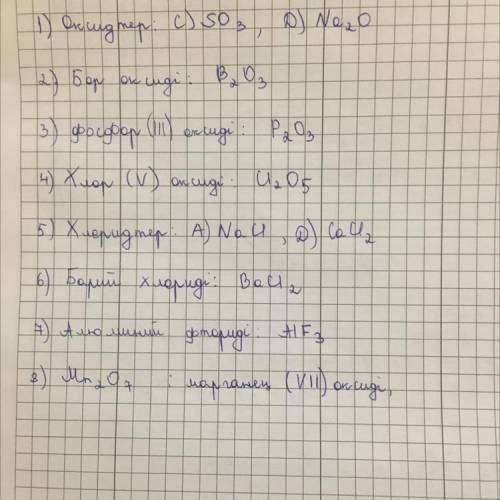 1) Оксидтер: C) SO3, D) Na2O
2) Бор оксиді: B2O3
3) Фосфор (III) оксиді: P2O3
4) Хлор (V) оксиді: Cl2O5
5) Хлоридтер: A) NaCl, D) CaCl2
6) Барий хлориді: BaCl2
7) Алюминий фториді: AlF3
8) Mn2O7 : марганец (VII) оксиді,